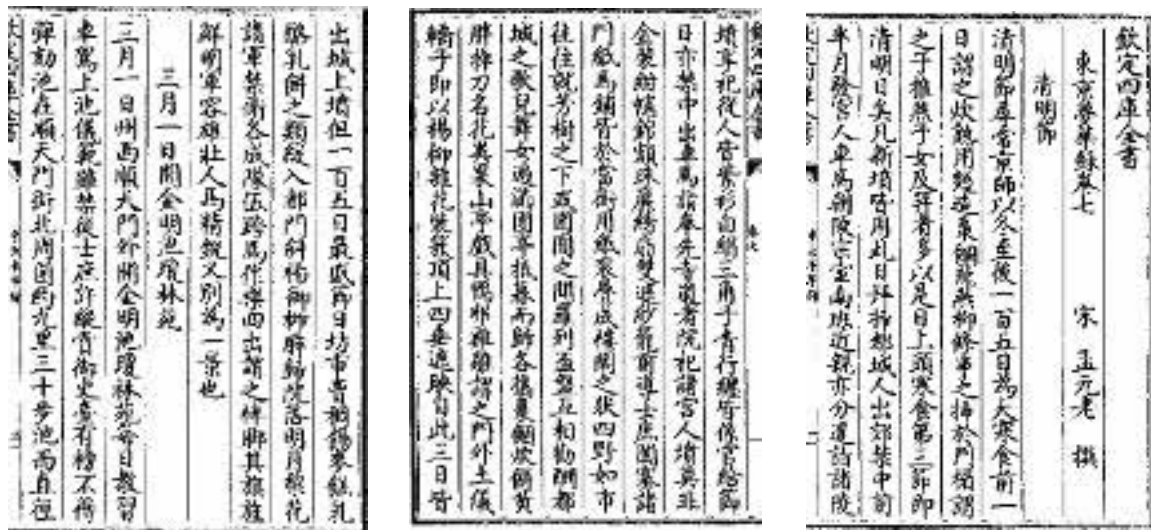 欽定四庫全書
東京夢華録卷七 宋 孟元老 撰
清明節
清明節尋常京師以冬至後一百五日為大寒食前一
日謂之炊熟用麵造棗䭅飛燕柳條串之插於門楣謂
之子推燕子女及笄者多以是日上頭寒食第三節即
清明日矣凡新墳皆用此日拜掃都城人出郊禁中前
半月發宮人車馬朝陵宗室南班近親亦分遣詣諸陵
墳享祀從人皆紫衫白絹三角子青行纏皆係官給節
日亦禁中出車馬詣奉先寺道者院祀諸宮人墳莫非
金裝紺幰錦額珠簾繡扇雙遮紗籠前導士庶闐塞諸
門紙馬鋪皆於當街用紙衮疊成樓閣之狀四野如市
往往就芳樹之下或園囿之間羅列盃盤互相勸酬都
城之歌兒舞女遍滿園亭抵暮而歸各攜棗䭅炊餅黄
胖掉刀名花異果山亭戲具鴨卵雞雛謂之門外土儀
轎子即以楊柳雜花裝簇頂上四垂遮映自此三日皆
出城上墳但一百五日最盛節日坊市賣稠餳麥糕乳
酪乳餅之類緩入都門斜陽御柳醉歸院落明月棃花
諸軍禁衛各成隊伍跨馬作樂四出謂之摔脚其旗旄
鮮明軍容雄壯人馬精鋭又别為一景也
三月一日開金明池瓊林苑
三月一日州西順天門外開金明池瓊林苑每日教習
車駕上池儀範雖禁從士庶許縱賞御史臺有榜不得
彈劾池在順天門街北周圍約九里三十步池西直徑